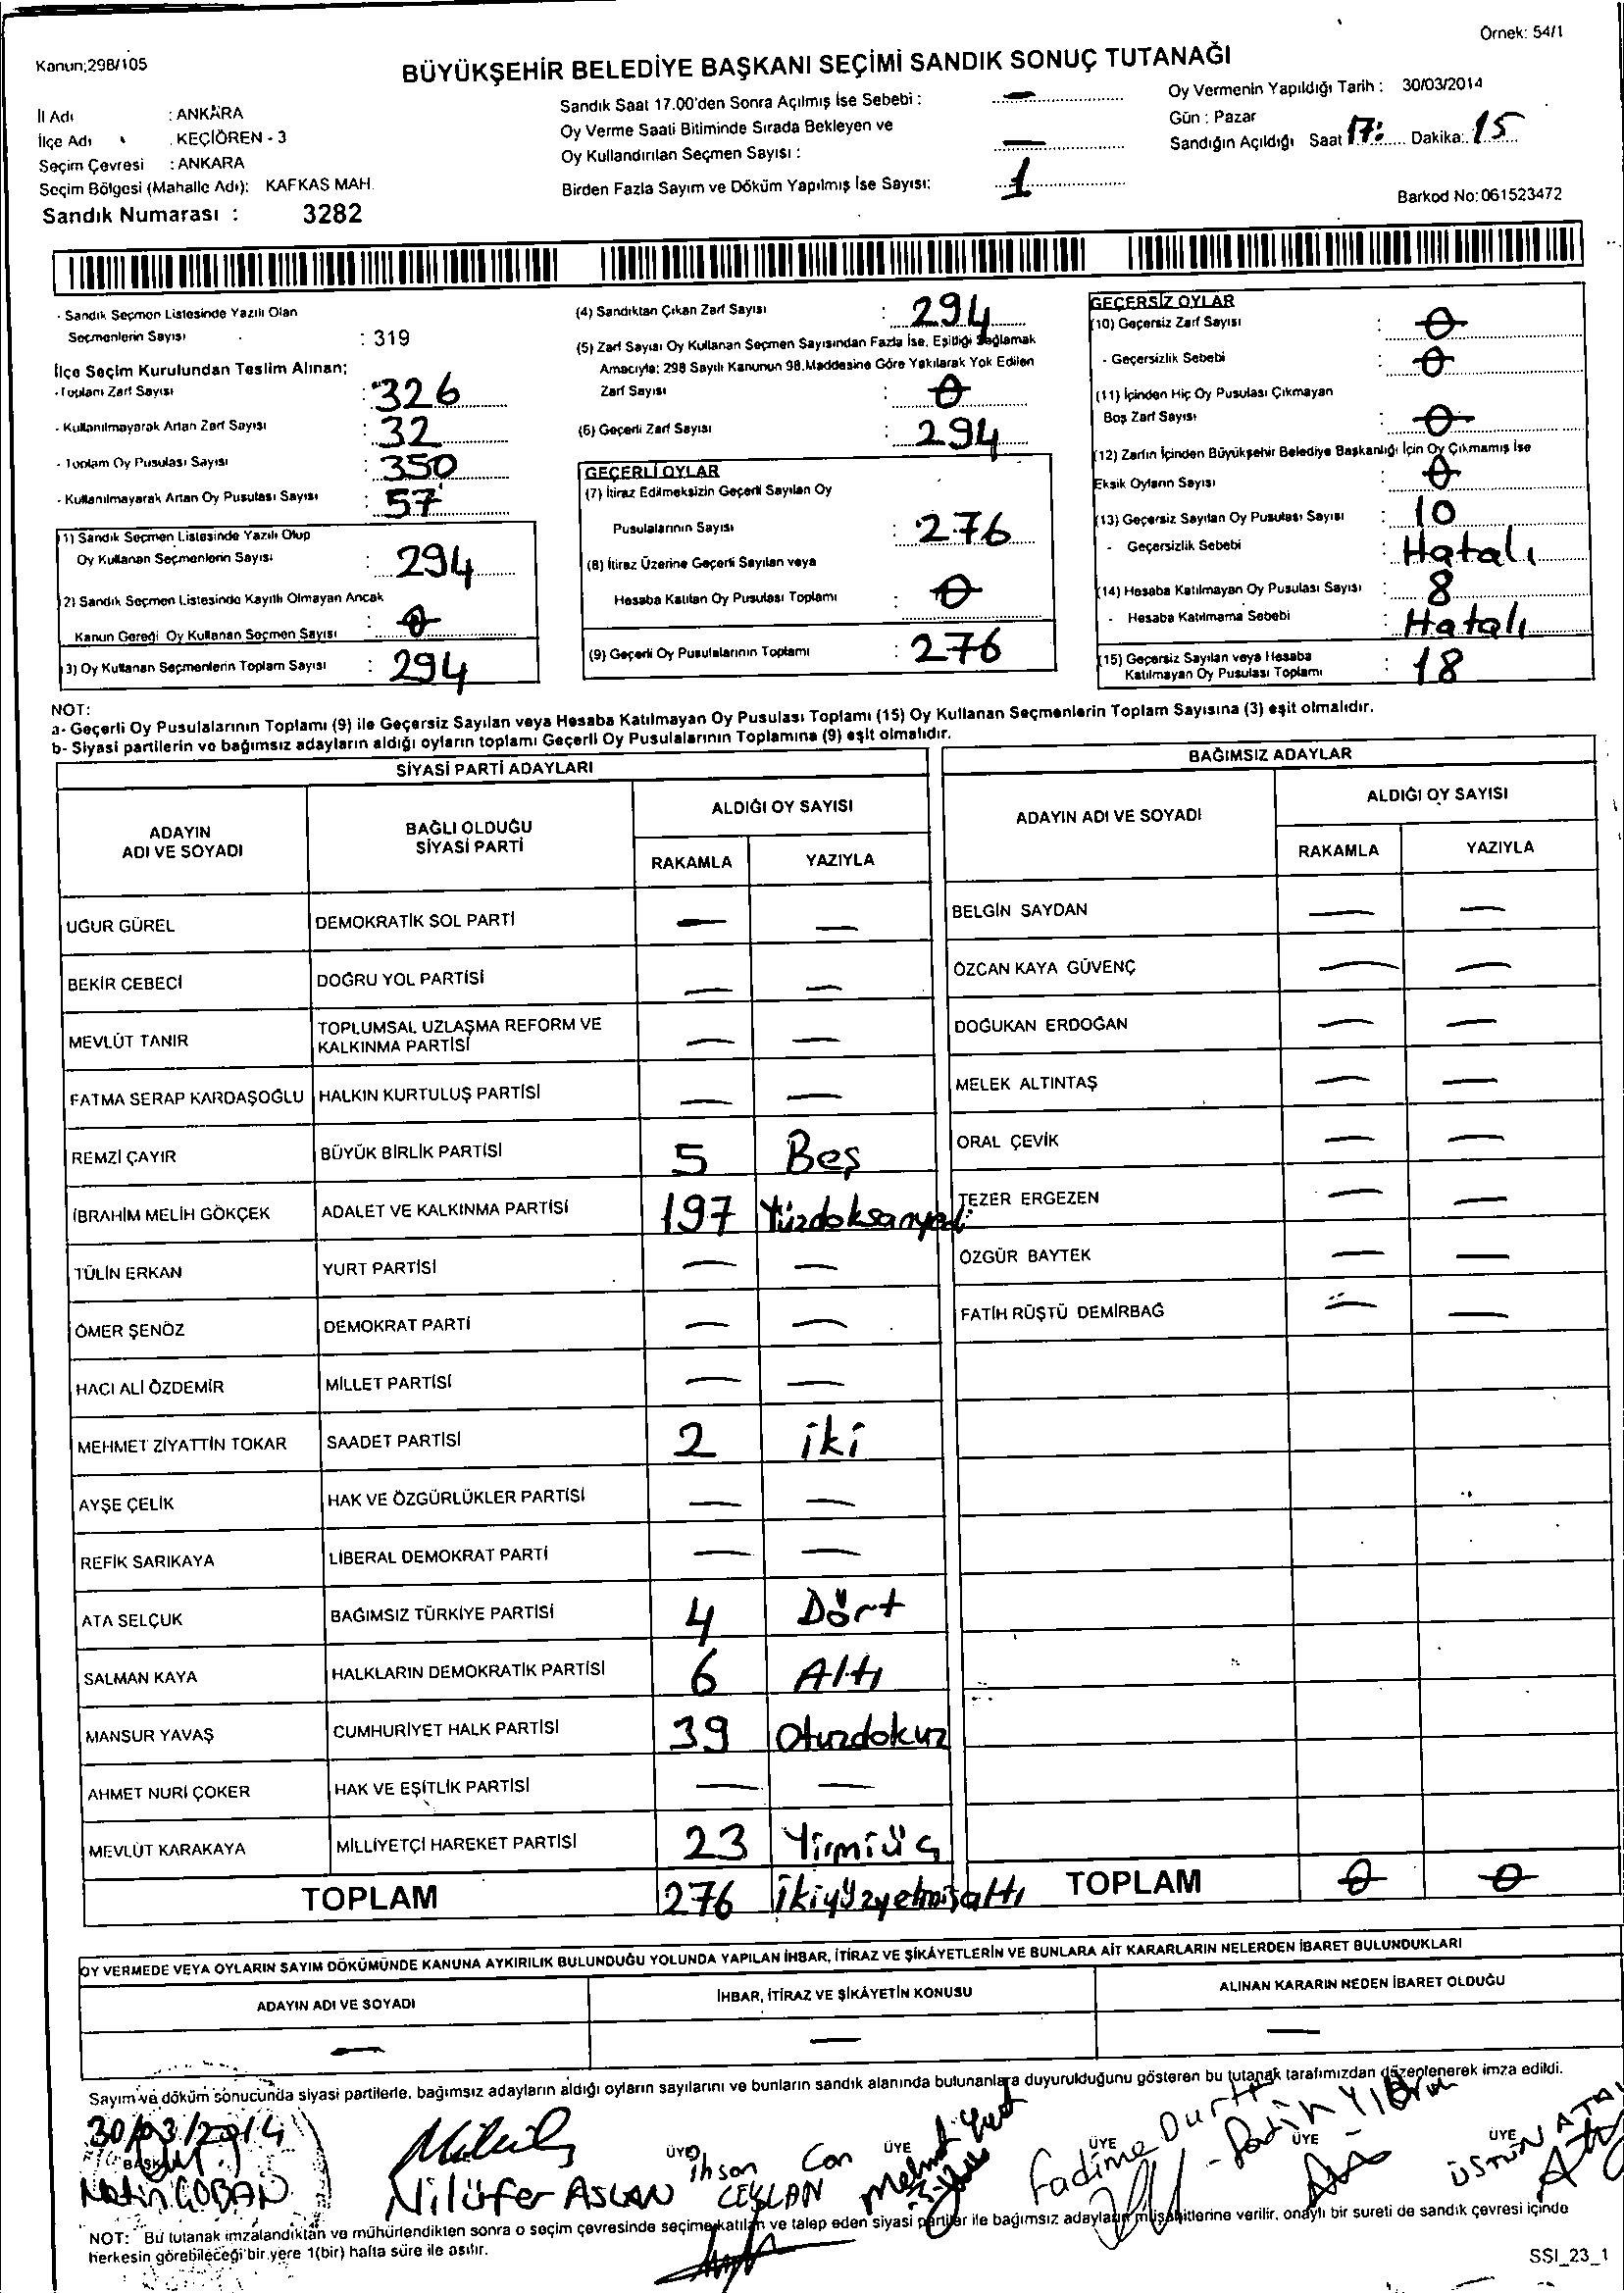 Örnek: 54/1
Kanun;298/105
BÜYÜKŞEHİR BELEDİYE BAŞKANI SEÇİMİ SANDIK SONUÇ TUTANAĞI
İl Adı : ANKARA
İlçe Adı : KEÇİÖREN - 3
Seçim Çevresi : ANKARA
Seçim Bölgesi (Mahalle Adı): KAFKAS MAH.
Sandık Numarası : 3282
Sandık Saat 17.00'den Sonra Açılmış İse Sebebi : —
Oy Verme Saati Bitiminde Sırada Bekleyen ve
Oy Kullandırılan Seçmen Sayısı : —
Birden Fazla Sayım ve Döküm Yapılmış İse Sayısı: 1
Oy Vermenin Yapıldığı Tarih : 30/03/2014
Gün : Pazar
Sandığın Açıldığı Saat 17: Dakika: 15
Barkod No: 061523472
- Sandık Seçmen Listesinde Yazılı Olan
Seçmenlerin Sayısı : 319
İlçe Seçim Kurulundan Teslim Alınan;
- Toplam Zarf Sayısı : 326
- Kullanılmayarak Artan Zarf Sayısı : 32
- Toplam Oy Pusulası Sayısı : 350
- Kullanılmayarak Artan Oy Pusulası Sayısı : 57
(1) Sandık Seçmen Listesinde Yazılı Olup
Oy Kullanan Seçmenlerin Sayısı : 294
(2) Sandık Seçmen Listesinde Kayıtlı Olmayan Ancak
Kanun Gereği Oy Kullanan Seçmen Sayısı : 0
(3) Oy Kullanan Seçmenlerin Toplam Sayısı : 294
(4) Sandıktan Çıkan Zarf Sayısı : 294
(5) Zarf Sayısı Oy Kullanan Seçmen Sayısından Fazla İse, Eşitliği Sağlamak
Amacıyla; 298 Sayılı Kanunun 98.Maddesine Göre Yakılarak Yok Edilen
Zarf Sayısı : 0
(6) Geçerli Zarf Sayısı : 294
GEÇERLİ OYLAR
(7) İtiraz Edilmeksizin Geçerli Sayılan Oy
Pusulalarının Sayısı : 276
(8) İtiraz Üzerine Geçerli Sayılan veya
Hesaba Katılan Oy Pusulası Toplamı : 0
(9) Geçerli Oy Pusulalarının Toplamı : 276
GEÇERSİZ OYLAR
(10) Geçersiz Zarf Sayısı : 0
- Geçersizlik Sebebi : 0
(11) İçinden Hiç Oy Pusulası Çıkmayan
Boş Zarf Sayısı : 0
(12) Zarfın İçinden Büyükşehir Belediye Başkanlığı İçin Oy Çıkmamış İse
Eksik Oyların Sayısı : 0
(13) Geçersiz Sayılan Oy Pusulası Sayısı : 10
- Geçersizlik Sebebi : Hatalı
(14) Hesaba Katılmayan Oy Pusulası Sayısı : 8
- Hesaba Katılmama Sebebi : Hatalı
(15) Geçersiz Sayılan veya Hesaba
Katılmayan Oy Pusulası Toplamı : 18
NOT:
a- Geçerli Oy Pusulalarının Toplamı (9) ile Geçersiz Sayılan veya Hesaba Katılmayan Oy Pusulası Toplamı (15) Oy Kullanan Seçmenlerin Toplam Sayısına (3) eşit olmalıdır.
b- Siyasi partilerin ve bağımsız adayların aldığı oyların toplamı Geçerli Oy Pusulalarının Toplamına (9) eşit olmalıdır.
SİYASİ PARTİ ADAYLARI
ADAYIN ADI VE SOYADI
BAĞLI OLDUĞU SİYASİ PARTİ
ALDIĞI OY SAYISI
RAKAMLA YAZIYLA
UĞUR GÜREL DEMOKRATİK SOL PARTİ — —
BEKİR CEBECİ DOĞRU YOL PARTİSİ — —
MEVLÜT TANIR TOPLUMSAL UZLAŞMA REFORM VE KALKINMA PARTİSİ — —
FATMA SERAP KARDAŞOĞLU HALKIN KURTULUŞ PARTİSİ — —
REMZİ ÇAYIR BÜYÜK BİRLİK PARTİSİ 5 Beş
İBRAHİM MELİH GÖKÇEK ADALET VE KALKINMA PARTİSİ 197 Yüzdoksanyedi
TÜLİN ERKAN YURT PARTİSİ — —
ÖMER ŞENÖZ DEMOKRAT PARTİ — —
HACI ALİ ÖZDEMİR MİLLET PARTİSİ — —
MEHMET ZİYATTİN TOKAR SAADET PARTİSİ 2 iki
AYŞE ÇELİK HAK VE ÖZGÜRLÜKLER PARTİSİ — —
REFİK SARIKAYA LİBERAL DEMOKRAT PARTİ — —
ATA SELÇUK BAĞIMSIZ TÜRKİYE PARTİSİ 4 Dört
SALMAN KAYA HALKLARIN DEMOKRATİK PARTİSİ 6 Altı
MANSUR YAVAŞ CUMHURİYET HALK PARTİSİ 39 Otuzdokuz
AHMET NURİ ÇOKER HAK VE EŞİTLİK PARTİSİ — —
MEVLÜT KARAKAYA MİLLİYETÇİ HAREKET PARTİSİ 23 Yirmiüç
TOPLAM 276 İkiyüzyetmişaltı
BAĞIMSIZ ADAYLAR
ADAYIN ADI VE SOYADI
ALDIĞI OY SAYISI
RAKAMLA YAZIYLA
BELGİN SAYDAN — —
ÖZCAN KAYA GÜVENÇ — —
DOĞUKAN ERDOĞAN — —
MELEK ALTINTAŞ — —
ORAL ÇEVİK — —
TEZER ERGEZEN — —
ÖZGÜR BAYTEK — —
FATİH RÜŞTÜ DEMİRBAĞ — —
TOPLAM 0 0
OY VERMEDE VEYA OYLARIN SAYIM DÖKÜMÜNDE KANUNA AYKIRILIK BULUNDUĞU YOLUNDA YAPILAN İHBAR, İTİRAZ VE ŞİKÂYETLERİN VE BUNLARA AİT KARARLARIN NELERDEN İBARET BULUNDUKLARI
ADAYIN ADI VE SOYADI İHBAR, İTİRAZ VE ŞİKÂYETİN KONUSU ALINAN KARARIN NEDEN İBARET OLDUĞU
— — —
Sayım ve döküm sonucunda siyasi partilerle, bağımsız adayların aldığı oyların sayılarını ve bunların sandık alanında bulunanlara duyurulduğunu gösteren bu tutanak tarafımızdan düzenlenerek imza edildi.
30/03/2014
BAŞKAN ÜYE ÜYE ÜYE ÜYE ÜYE
Metin ÇOBAN
Nilüfer ASLAN
ihsan Can CEYLAN
Fadime
NOT: Bu tutanak imzalandıktan ve mühürlendikten sonra o seçim çevresinde seçime katılan ve talep eden siyasi partiler ile bağımsız adayların müşahitlerine verilir, onaylı bir sureti de sandık çevresi içinde
herkesin görebileceği bir yere 1(bir) hafta süre ile asılır.
SSI_23_1